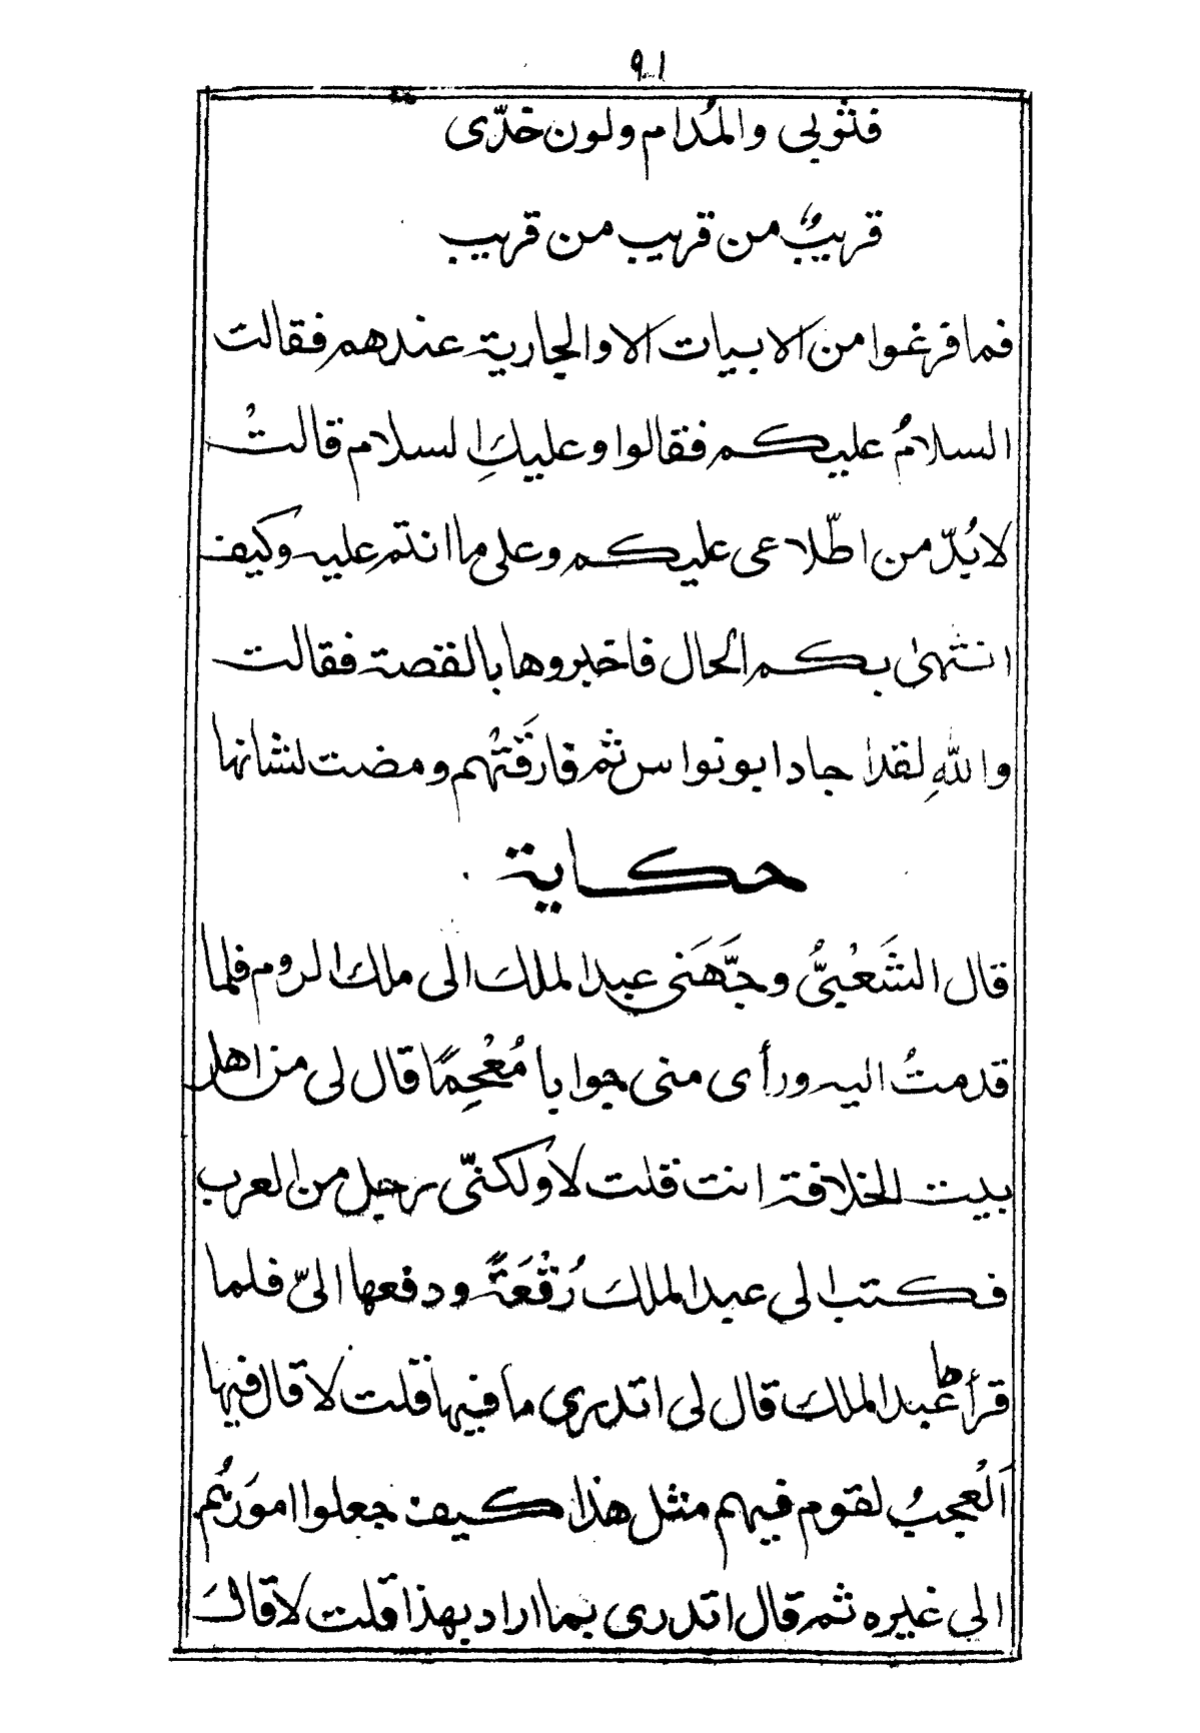 ٩١
فثوبي والمُدام ولون خدّى
قريبٌ من قريب من قريب
فما فرغوا من الابيات الا والجارية عندهم فقالت
السلامُ عليكم فقالوا وعليكِ السلام قالتْ
لابُدّ من اطّلاعى عليكم وعلى ما انتم عليه وكيف
انتهىٰ بكم الحال فاخبروها بالقصة فقالت
واللّٰهِ لقد اجاد ابو نواس ثم فارقَتْهم ومضت لشانها
حكاية
قال الشَعْبيُّ وجَّهَنى عبد الملك الى ملك الروم فلما
قدمتُ اليه ورأى منى جوابا مُعْجِمًا قال لى من اهل
بيت الخلافة انت قلت لا ولكنّى رجل من العرب
فكتب الى عبد الملك رُقْعَةً ودفعها الىّ فلما
قرأها عبد الملك قال لى اتدرى ما فيها قلت لا قال فيها
اَلْعجبُ لقوم فيهم مثل هذا كيف جعلوا امورَهُم
الى غيره ثم قال اتدرى بما اراد بهذا قلت لا قال